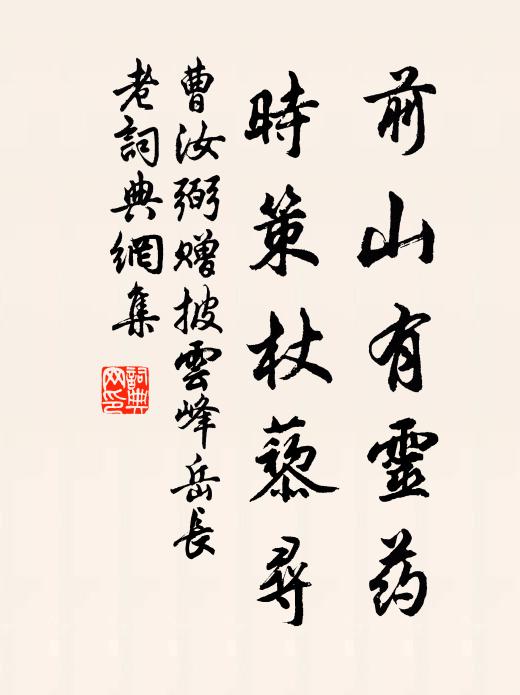 前山有靈药
時策杖藜尋
曹汝弼贈披雲峰岳長
老詞典網集
詞典網印